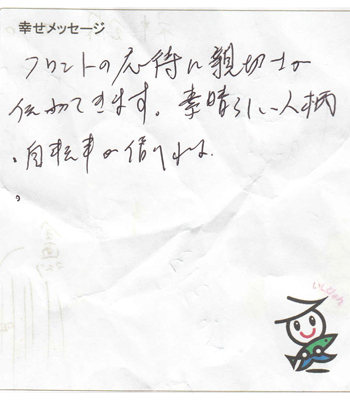 幸せメッセージ
フロントの応待に親切さが
伝わてきます。素晴らしい人柄
、自転車が借りれは
。